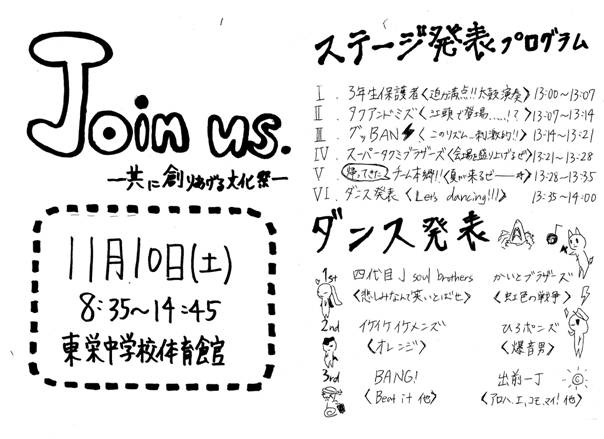 Join us.
ー共に創りあげる文化祭ー
11月10日(土)
8:35~14:45
東栄中学校体育館
ステージ発表プログラム
Ⅰ. 3年生保護者<迫力満点!!太鼓演奏>13:00~13:07
Ⅱ. タクアンドミズ<江頭で登場……!?>13:07~13:14
Ⅲ. グッBAN<このリズム…刺激的!!>13:14~13:21
Ⅳ. スーパータクミブラザーズ<会場を盛り上げるぜ>13:21~13:28
Ⅴ. 帰ってきたチーム本郷!!<夏が来るぜ〜>13:28~13:35
Ⅵ. ダンス発表<Lets dancing!!!>13:35~14:00
ダンス発表
1st 四代目 J soul brothers かいとブラザーズ
<悲しみなんて笑いとばせ> <虹色の戦争>
2nd イケイケイケメンズ ひろポンズ
<オレンジ> <爆音男>
3rd BANG! 出前一丁
<Beat it 他> <アロハ.エ.コモ.マイ! 他>